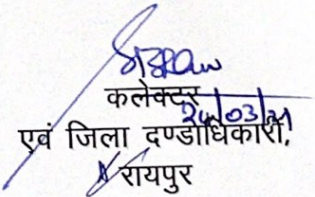 कलेक्टर
24/03/21
एवं जिला दण्डाधिकारी,
रायपुर